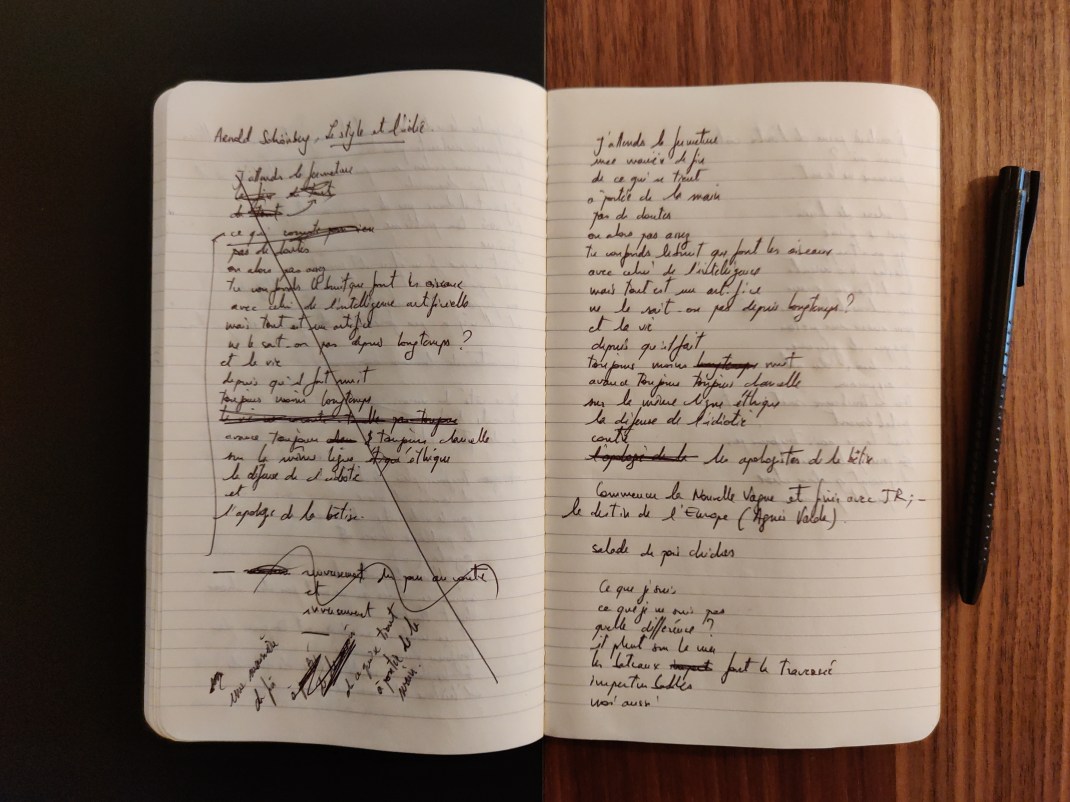 Arnold Schönberg, Le style et l'idée.
J'attends la fermeture
ce que
pas de doutes
ou alors pas assez
tu confonds le bruit que font les oiseaux
avec celui de l'intelligence artificielle
mais tout est un artifice
ne le sait-on pas depuis longtemps ?
et la vie
depuis qu'il fait nuit
toujours moins longtemps
avance toujours toujours charnelle
sur la même ligne éthique
la défense de l'idiotie
et
l'apologie de la bêtise.
et
inversement
une manière
de fin
et ce qui se tient
à portée de la
main.
J'attends la fermeture
une manière de fin
de ce qui se tient
à portée de la main
pas de doutes
ou alors pas assez
tu confonds le bruit que font les oiseaux
avec celui de l'intelligence
mais tout est un artifice
ne le sait-on pas depuis longtemps ?
et la vie
depuis qu'il fait
toujours moins longtemps nuit
avance toujours toujours charnelle
sur la même ligne éthique
la défense de l'idiotie
contre
l'apologie de la les apologistes de la bêtise
Commencer la Nouvelle Vague et finir avec JR ; –
le destin de l'Europe (Agnès Varda).
salade de pois chiches
Ce que je suis
ce que je ne suis pas
quelle différence ?
il pleut sur la mer
les bateaux font la traversée
imperturbables
moi aussi